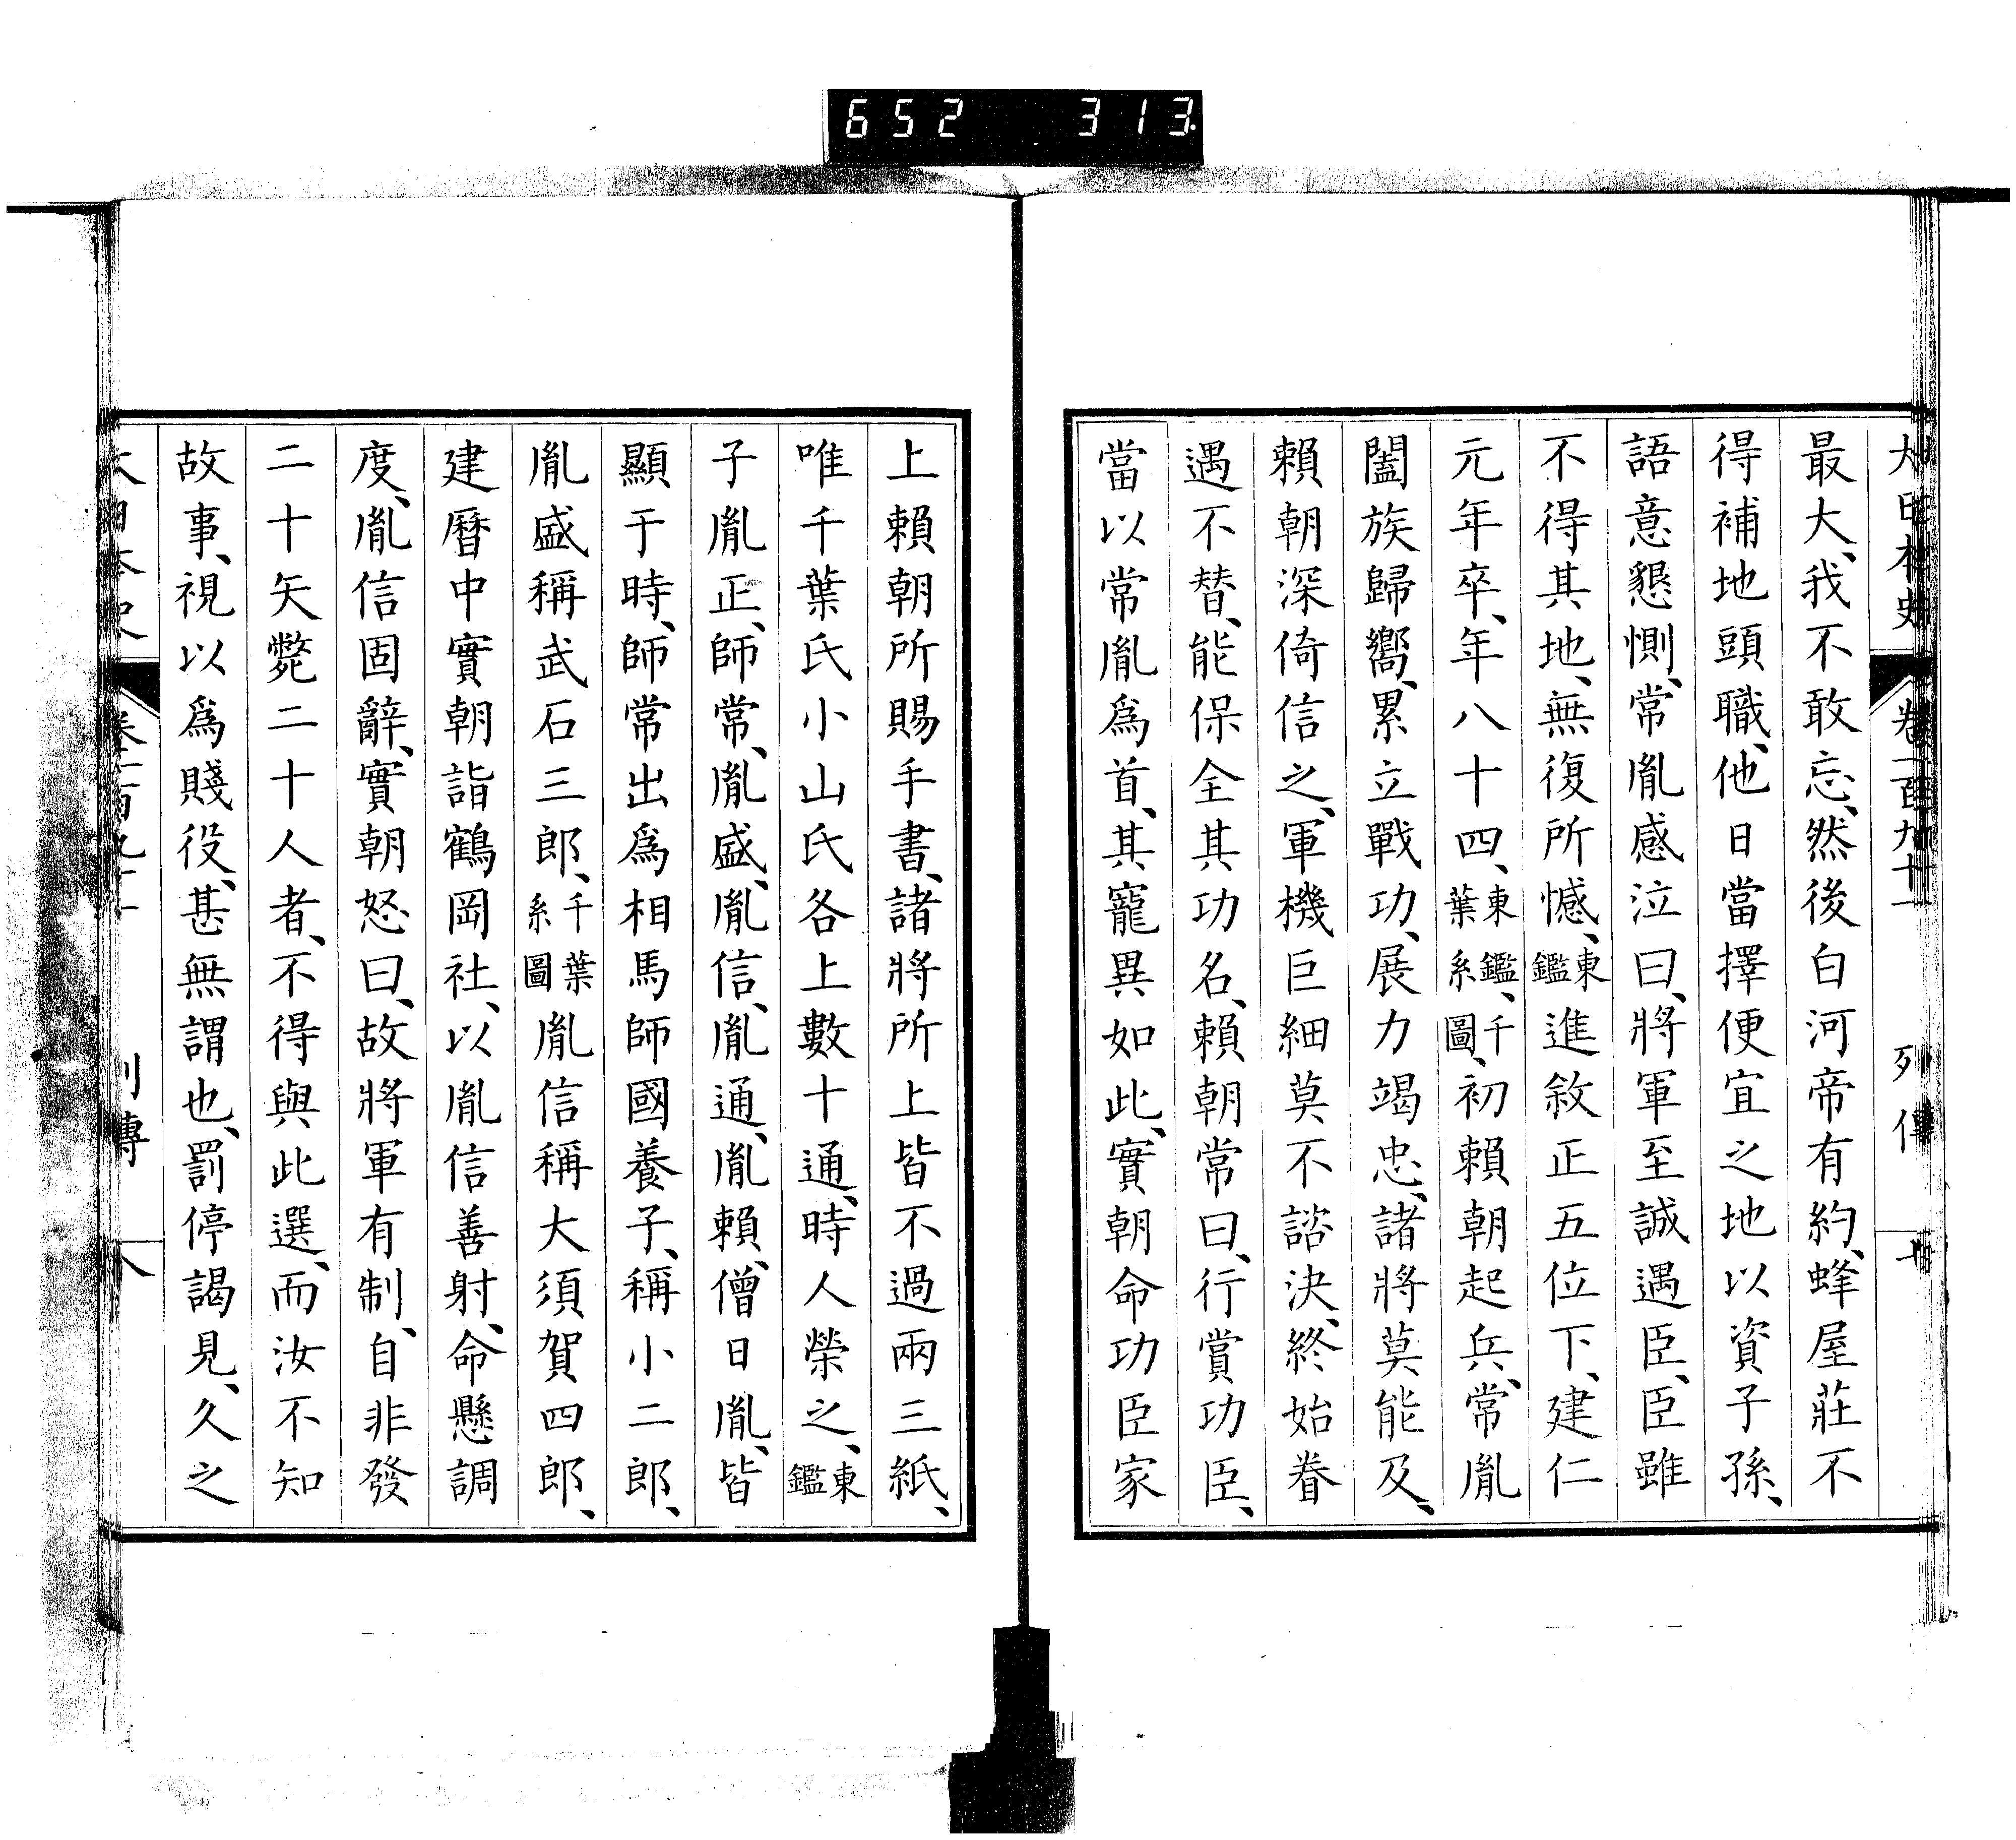 652 313
大日本史 卷一百九十一 列傳
最大、我不敢忘、然後白河帝有約、蜂屋莊不
得補地頭職、他日當擇便宜之地以資子孫、
語意懇惻、常胤感泣曰、將軍至誠遇臣、臣雖
不得其地、無復所憾、東鑑進敘正五位下、建仁
元年卒、年八十四、東鑑、千葉系圖、初賴朝起兵、常胤
闔族歸嚮、累立戰功、展力竭忠、諸將莫能及、
賴朝深倚信之、軍機巨細莫不諮決、終始眷
遇不替、能保全其功名、賴朝常曰、行賞功臣、
當以常胤爲首、其寵異如此、實朝命功臣家
上賴朝所賜手書、諸將所上皆不過兩三紙、
唯千葉氏小山氏各上數十通、時人榮之、東鑑
子胤正、師常、胤盛、胤信、胤通、胤賴、僧日胤、皆
顯于時、師常出爲相馬師國養子、稱小二郎、
胤盛稱武石三郎、千葉系圖胤信稱大須賀四郎、
建曆中實朝詣鶴岡社、以胤信善射、命懸調
度、胤信固辭、實朝怒曰、故將軍有制、自非發
二十矢斃二十人者、不得與此選、而汝不知
故事、視以爲賤役、甚無謂也、罰停謁見、久之
大日本史 卷一百九十一 列傳 八